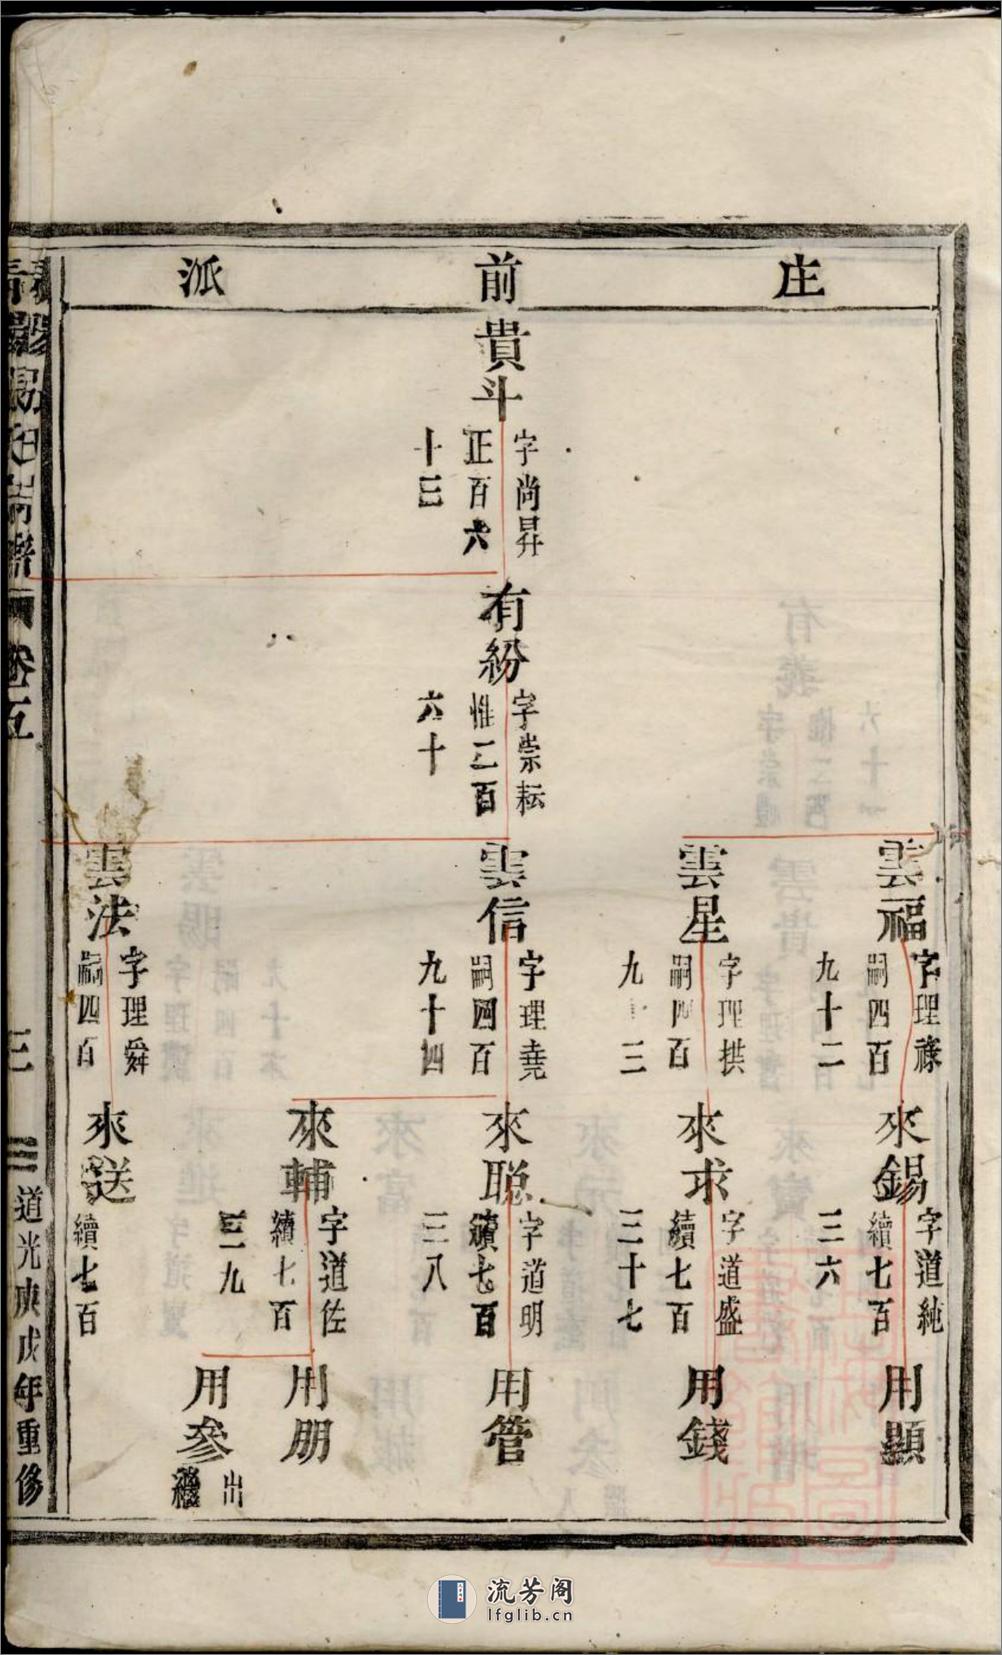 庄前派
貴斗
字尚昇
正百六
十三
有紛
字崇耘
惟二百
六十
雲福
字理祿
嗣四百
九十二
雲星
字理拱
嗣四百
九十三
雲信
字理堯
嗣四百
九十四
雲法
字理舜
嗣四百
來錫
字道純
續七百
三六
來求
字道盛
續七百
三十七
來聡
字道明
續七百
三八
來輔
字道佐
續七百
三九
來送
續七百
用顯
用錢
用管
用朋
用參
出
繼
卷五
三
道光庚戌年重修
流芳阁
lfglib.cn